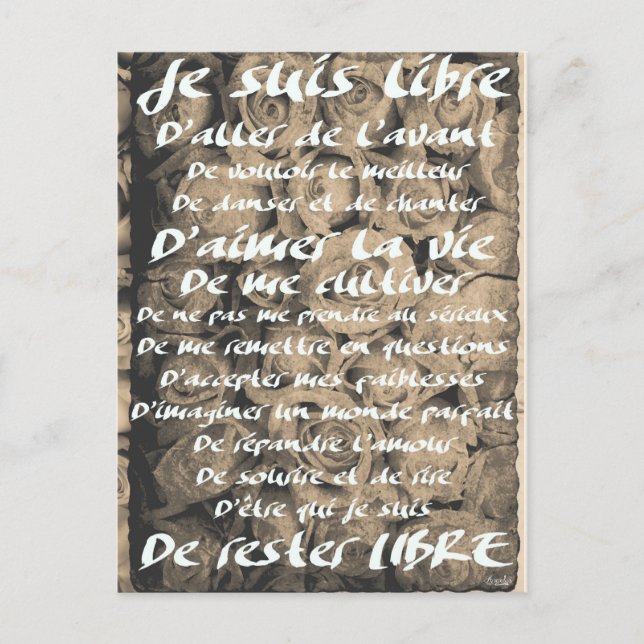 Je suis libre
D'aller de l'avant
De vouloir le meilleur
De danser et de chanter
D'aimer la vie
De me cultiver
De ne pas me prendre au sérieux
De me remettre en questions
D'accepter mes faiblesses
D'imaginer un monde parfait
De répandre l'amour
De sourire et de rire
D'être qui je suis
De rester LIBRE